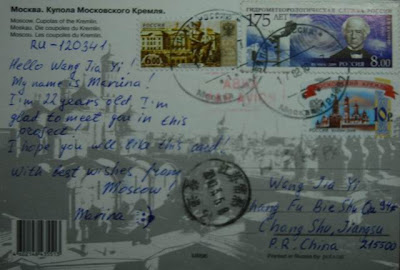 Москва. Купола Московского Кремля.
Moscow. Cupolas of the Kremlin.
Moskau. Die Coupolen des Kremls.
Moscou. Les coupoles du Kremlin.
RU-120341
Hello Wang Jia Yi!
My name is Marina!
I'm 22 years old. I'm
glad to meet you in this
project!
I hope you will like this card!
With best wishes, from
Moscow!
Marina
РОССИЯ
6.00
ГИДРОМЕТЕОРОЛОГИЧЕСКАЯ СЛУЖБА
175 ЛЕТ
РОССИЯ
8.00
10р
Wang Jia Yi
Chang Shu, Jiangsu
P.R. China 215500
Printed in Russia by